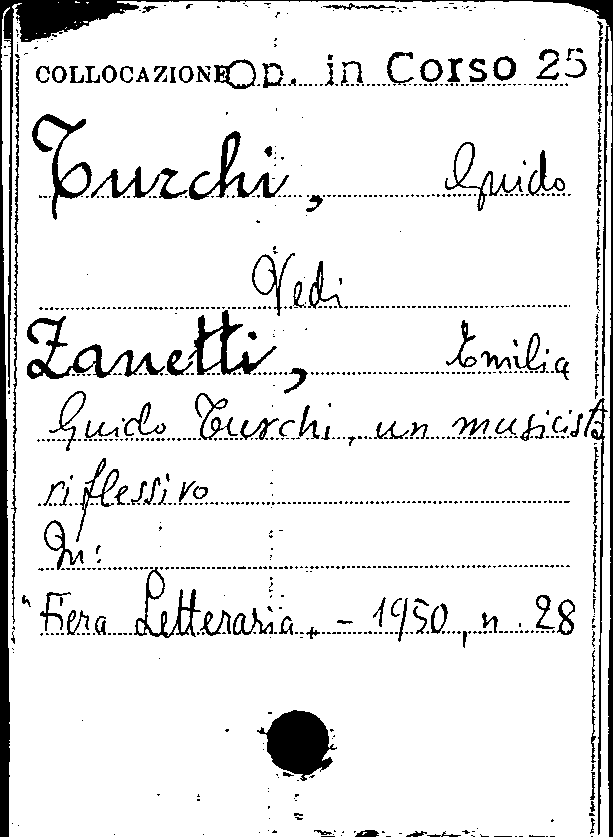 COLLOCAZIONE Op. in Corso 25
Turchi, Guido
Vedi
Zanetti, Emilia
Guido Turchi, un musicista
riflessivo
In:
"Fiera Letteraria„ - 1950, n. 28